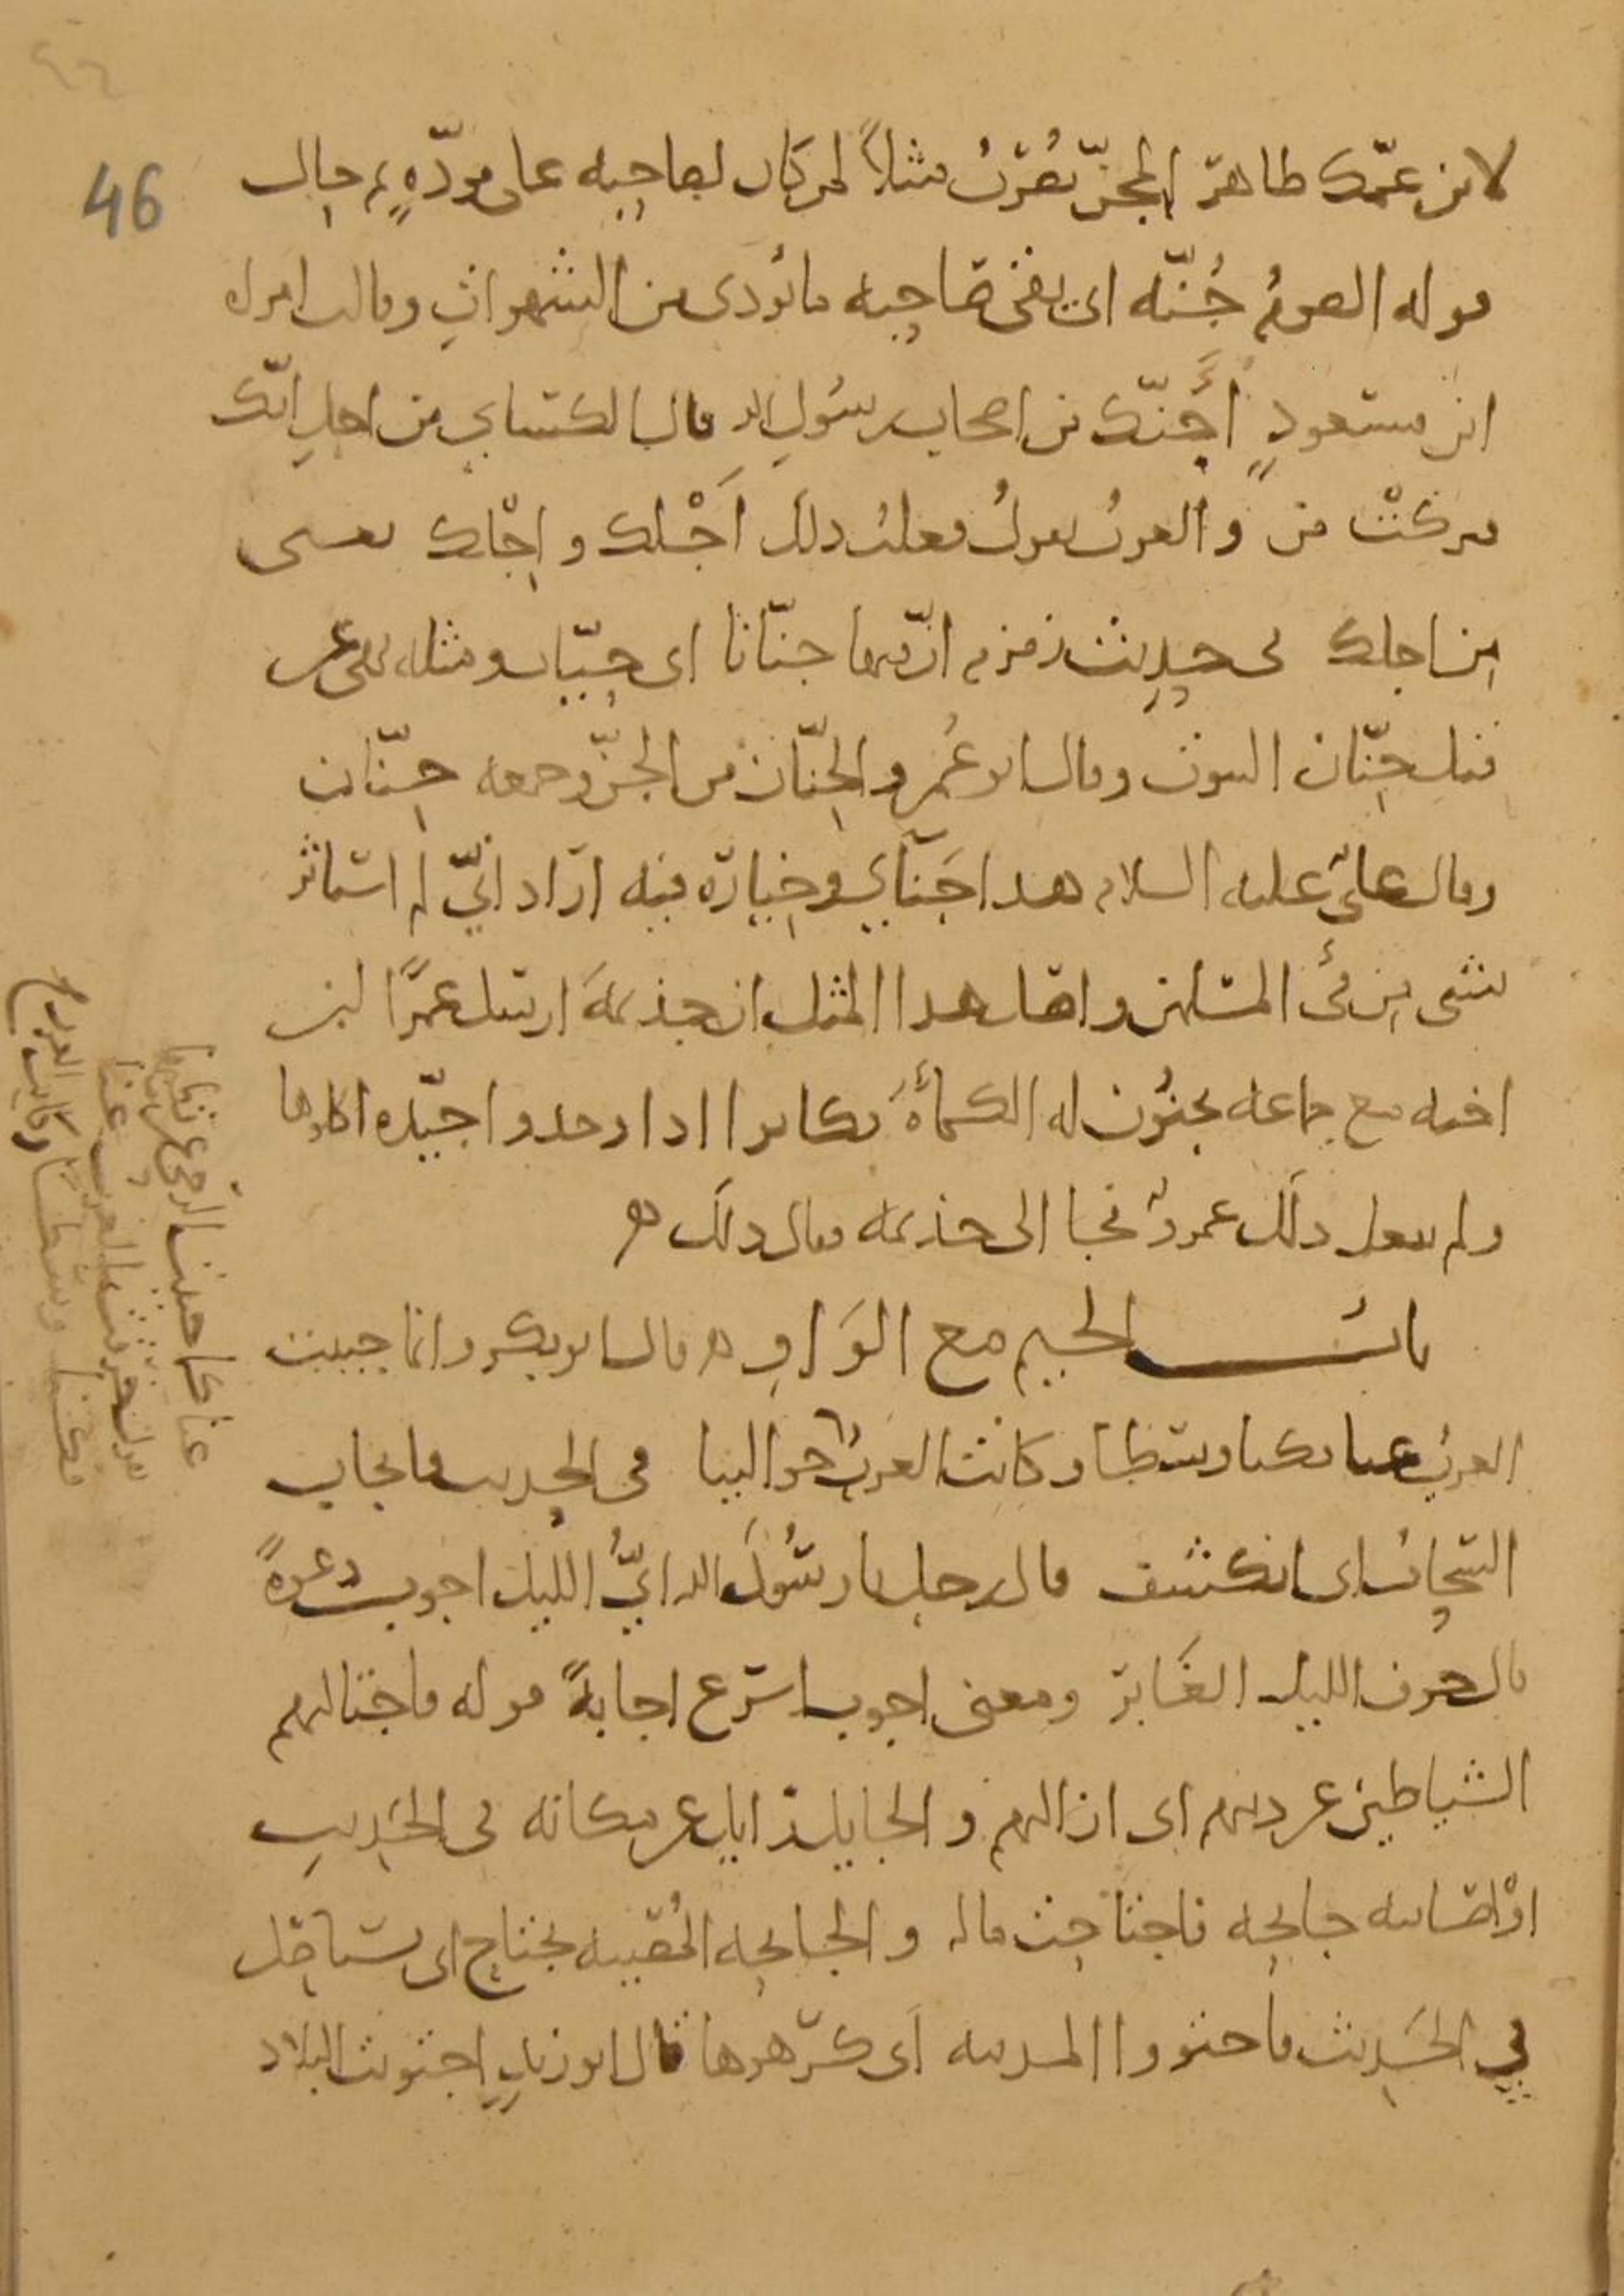 46
لابن عمّك ظاهر المجنّ يُضرَبُ مثلاً لمن كان لصاحبه على مودّةٍ ثم حال
قوله الصومُ جُنّه اى يقى صاحبه ما يُؤذى من الشهواتِ وقالت امراه
ابن مسعودٍ أَجَنّك من اصحاب رسُولِ الله قال الكسائى من اجلِ انّك
فتركتْ من والعربُ تقولُ فعلتُ ذلك اَجْلك و اِجْلك بمعنى
من اجلك فى حديث زمزم انّ فيها جنّانا اى حيّات ومثله نهى عن
قتل جِنّان البيوت وقال ابو عُمر والجِنّان من الجنّ وجمعه جِنّان
وقال علىّ عليه السلام هذا جَنَاىَ وخِيارُه فيه اراد انّى لم استاثر
بشى من فئ المسلمين واصل هذا المثل ان جذيمَةَ ارسل عمرًا ابن
اخته مع جماعه يجنُون له الكمأَةَ فكانوا اذا وجدوا جيّده اكلوها
ولم يفعل ذلك عمروٌ فجا الى جذيمه فقال ذلك ه
بابُ الجيم مع الوَاوِ ه قال ابو بكر وانما جيبت
العرب عنا كما وسطا وكانت العرب حوالينا فى الحديث فانجاب
السّحابُ اى انكشف قال رجل يا رسُولَ الله اىُّ الليل اجوب دعوةً
قال جوف الليل الغَابر ومعنى اجوب اسرع اجابةً قوله فاجتالهم
الشياطين عن دينهم اى ازالهم و الجايل زايل عن مكانه فى الحَديث
اوْ اصابته جايحه فاجتاحت ماله و الجايحه المُصيبه تجتاح اى تستاصل
فى الحَديث فاجتووا المدينه اَى كرّهوها قال ابو زيدٍ اجتويت البلاد